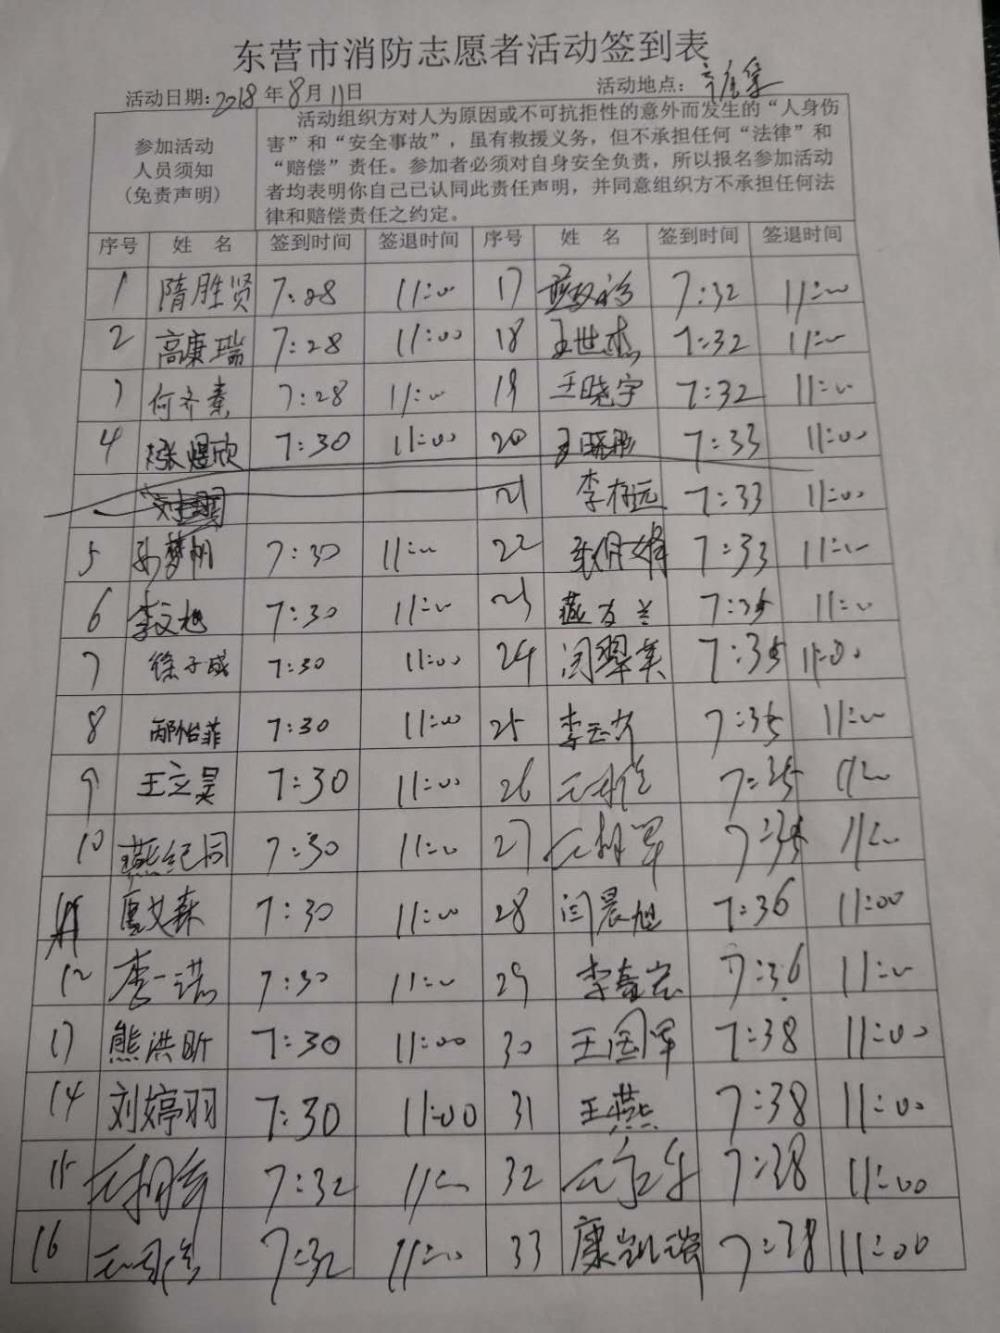 东营市消防志愿者活动签到表
活动日期:2018年8月11日 活动地点:
参加活动
人员须知
(免责声明)
活动组织方对人为原因或不可抗拒性的意外而发生的“人身伤
害”和“安全事故”，虽有救援义务，但不承担任何“法律”和
“赔偿”责任。参加者必须对自身安全负责，所以报名参加活动
者均表明你自己已认同此责任声明，并同意组织方不承担任何法
律和赔偿责任之约定。
序号 姓 名 签到时间 签退时间 序号 姓 名 签到时间 签退时间
1 隋胜贤 7:28 11:00 17 7:32 11:00
2 高康瑞 7:28 11:00 18 王世杰 7:32 11:00
3 何齐素 7:28 11:00 19 王晓宇 7:32 11:00
4 张煜欣 7:30 11:00 20 王晓彤 7:33 11:00
21 李存远 7:33 11:00
5 孙梦帆 7:30 11:00 22 7:33 11:00
6 李文旭 7:30 11:00 23 燕方兰 7:35 11:00
7 徐子成 7:30 11:00 24 闫翠美 7:35 11:00
8 邴怡菲 7:30 11:00 25 7:35 11:00
9 王立昊 7:30 11:00 26 7:35 11:00
10 燕纪同 7:30 11:00 27 7:35 11:00
11 夏艾森 7:30 11:00 28 闫晨旭 7:36 11:00
12 李一诺 7:30 11:00 29 7:36 11:00
13 熊洪昕 7:30 11:00 30 王国军 7:38 11:00
14 刘婷羽 7:30 11:00 31 王燕 7:38 11:00
15 7:32 11:00 32 7:38 11:00
16 7:32 11:00 33 康凯瑞 7:38 11:00